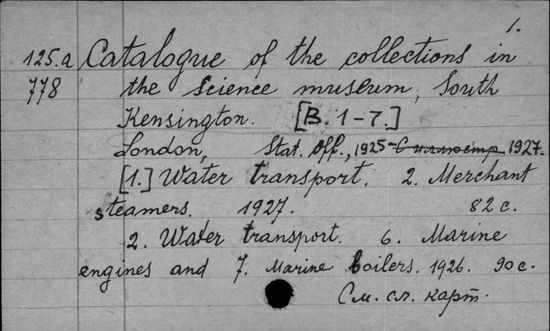 1.
125.a Catalogue of the collections in
778 the science museum, South
Kensington. [B. 1-7.]
London, Stat. Off., 1925-С иллюстр 1927.
[1.] Water transport. 2. Merchant
steamers. 1927. 82 c.
2. Water transport. 6. Marine
engines and 7. Marine boilers. 1926. 90 c.
См. сл. карт.